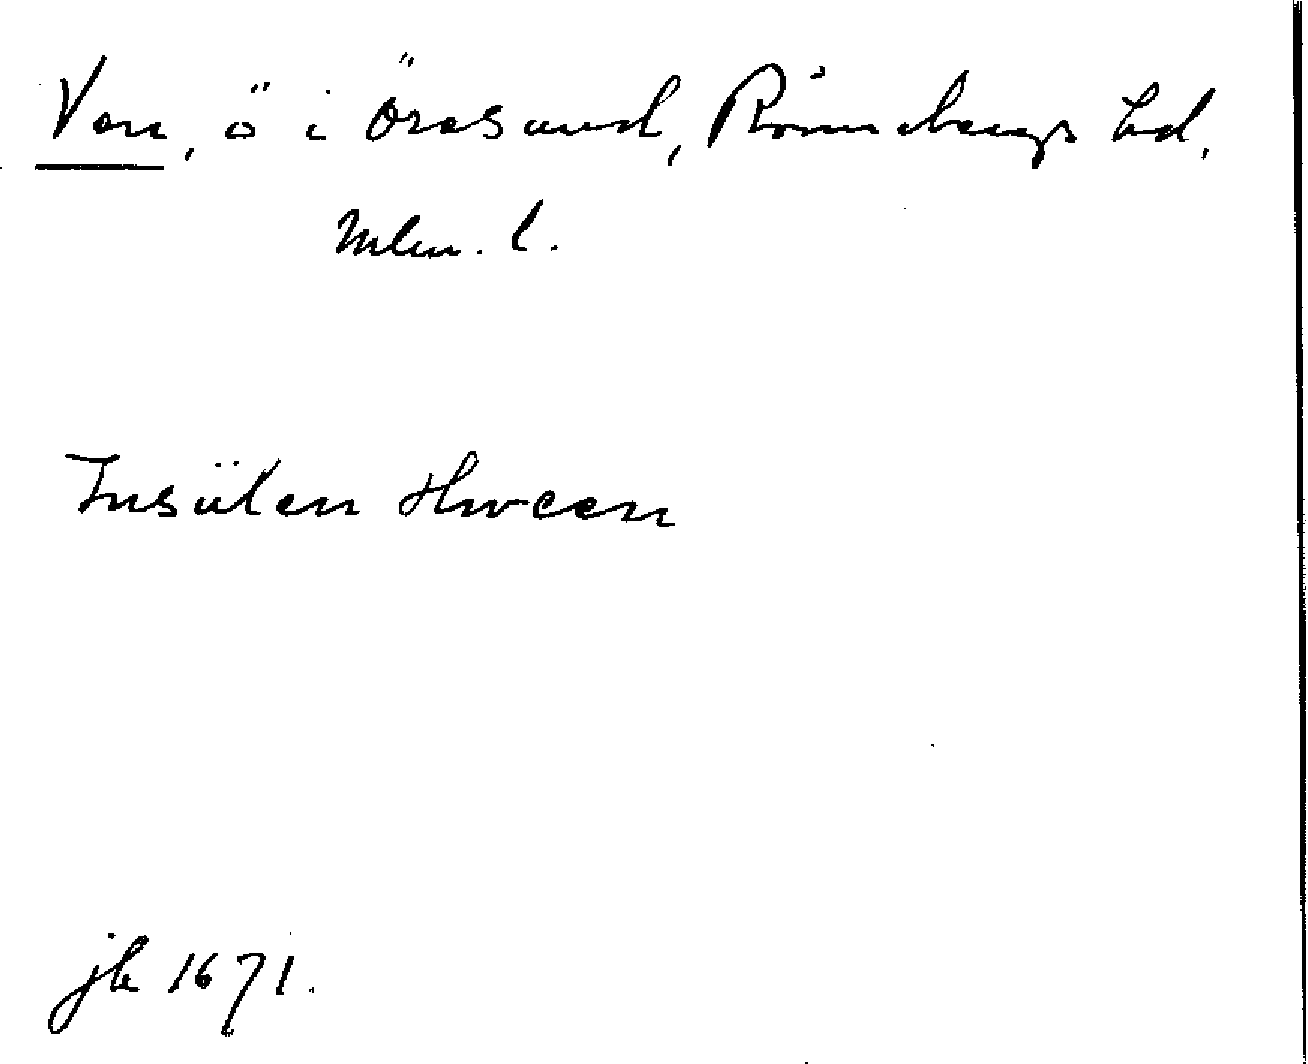 Ven, ö i Öresund, Rönnebergs hd,
Mlm. l.
Insülen Hween
jb 1671.